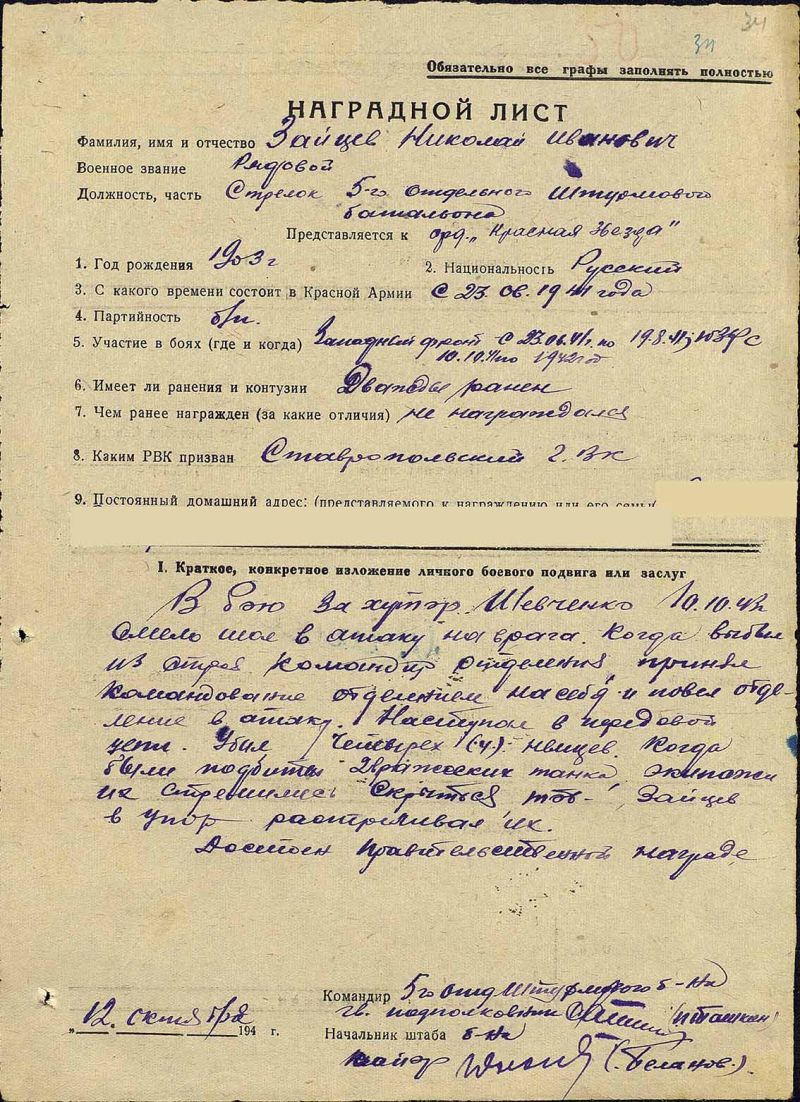 34
34
Обязательно все графы заполнять полностью
НАГРАДНОЙ ЛИСТ
Фамилия, имя и отчество Зайцев Николай Иванович
Военное звание Рядовой
Должность, часть Стрелок 5-го отдельного Штурмового
батальона
Представляется к орд. „Красная Звезда"
1. Год рождения 1903 г 2. Национальность Русский
3. С какого времени состоит в Красной Армии С 23.06.1941 года
4. Партийность б/п.
5. Участие в боях (где и когда) Западный фронт с 23.06.41г. по 19.8.41;
10.10.41 по 1942 год
6. Имеет ли ранения и контузии Дважды ранен
7. Чем ранее награжден (за какие отличия) не награждался
8. Каким РВК призван Ставропольский Г.В.К
9. Постоянный домашний адрес: (представляемого к награждению или его семьи)
I. Краткое, конкретное изложение личного боевого подвига или заслуг
В бою за хутор Шевченко 10.10.43г
смело шол в атаку на врага. Когда выбыл
из строя командир отделения, принял
командование отделением на себя и повел отде-
ление в атаку. Наступал в передовой
цепи. Убил Четырех (4) немцев. Когда
были подбиты 2 вражеских танка, экипажи
их стремились скрыться, тов. Зайцев
в упор растреливал их.
Достоин правительственной награде
Командир 5-го отд Штурмового б-на
гв. подполковник
„12. октября 194 г. Начальник штаба б-на
майор